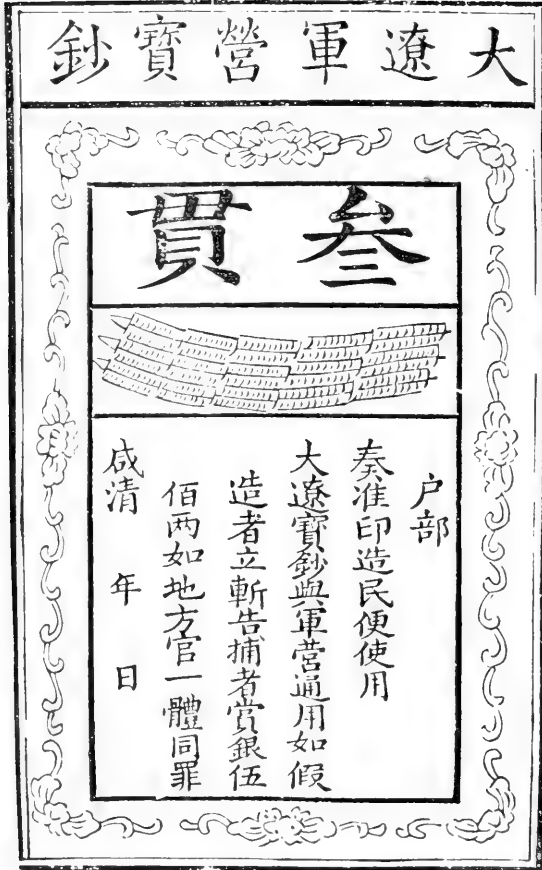 大遼軍營寶鈔
叁貫
户部
奏准印造民便使用
大遼寳鈔與軍营通用如假
造者立斬告捕者賞銀伍
佰两如地方官一體同罪
咸清 年 日